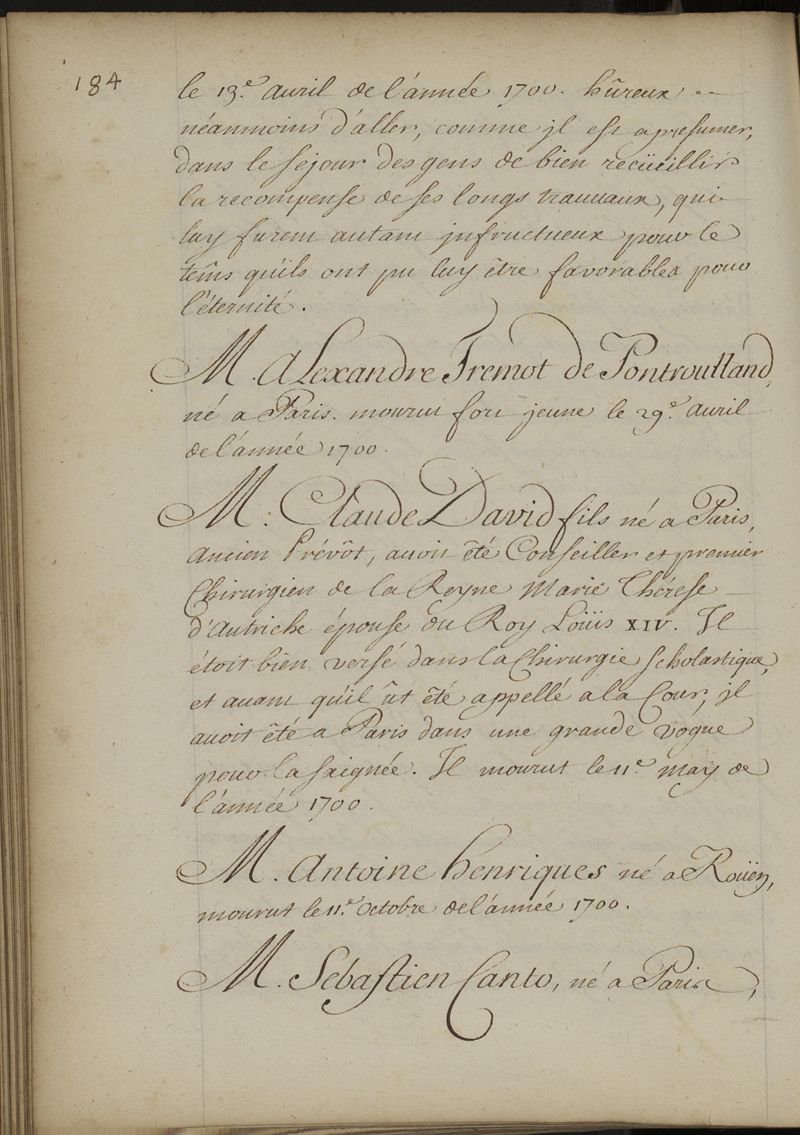 184
le 13.e avril de l'année 1700. hûreux
néanmoins d'aller, comme jl est a presumer,
dans le séjour des gens de bien recüeillir
la recompense de ses longs travaux, qui
luy furent autant jnfructueux pour le
têms qu'ils ont pu luy être favorables pour
l'éternité.
M. Alexandre Tremot de Pontroulland,
né a Paris. mourut fort jeune le 29.e avril
de l'année 1700.
M. Claude David fils né a Paris,
ancien Prévôt, avoit été Conseiller et premier
Chirurgien de la Reyne Marie Thérese
d'Autriche épouse du Roy Loüis XIV. Il
étoit bien versé dans la Chirurgie scholastique,
et avant qu'il ût été appellé a la Cour, jl
avoit été a Paris dans une grande vogue
pour la saignée. Il mourut le 11.e may de
l'année 1700.
M. Antoine henriques né a Roüen,
mourut le 11.e octobre de l'année 1700.
M. Sébastien Canto, né a Paris,